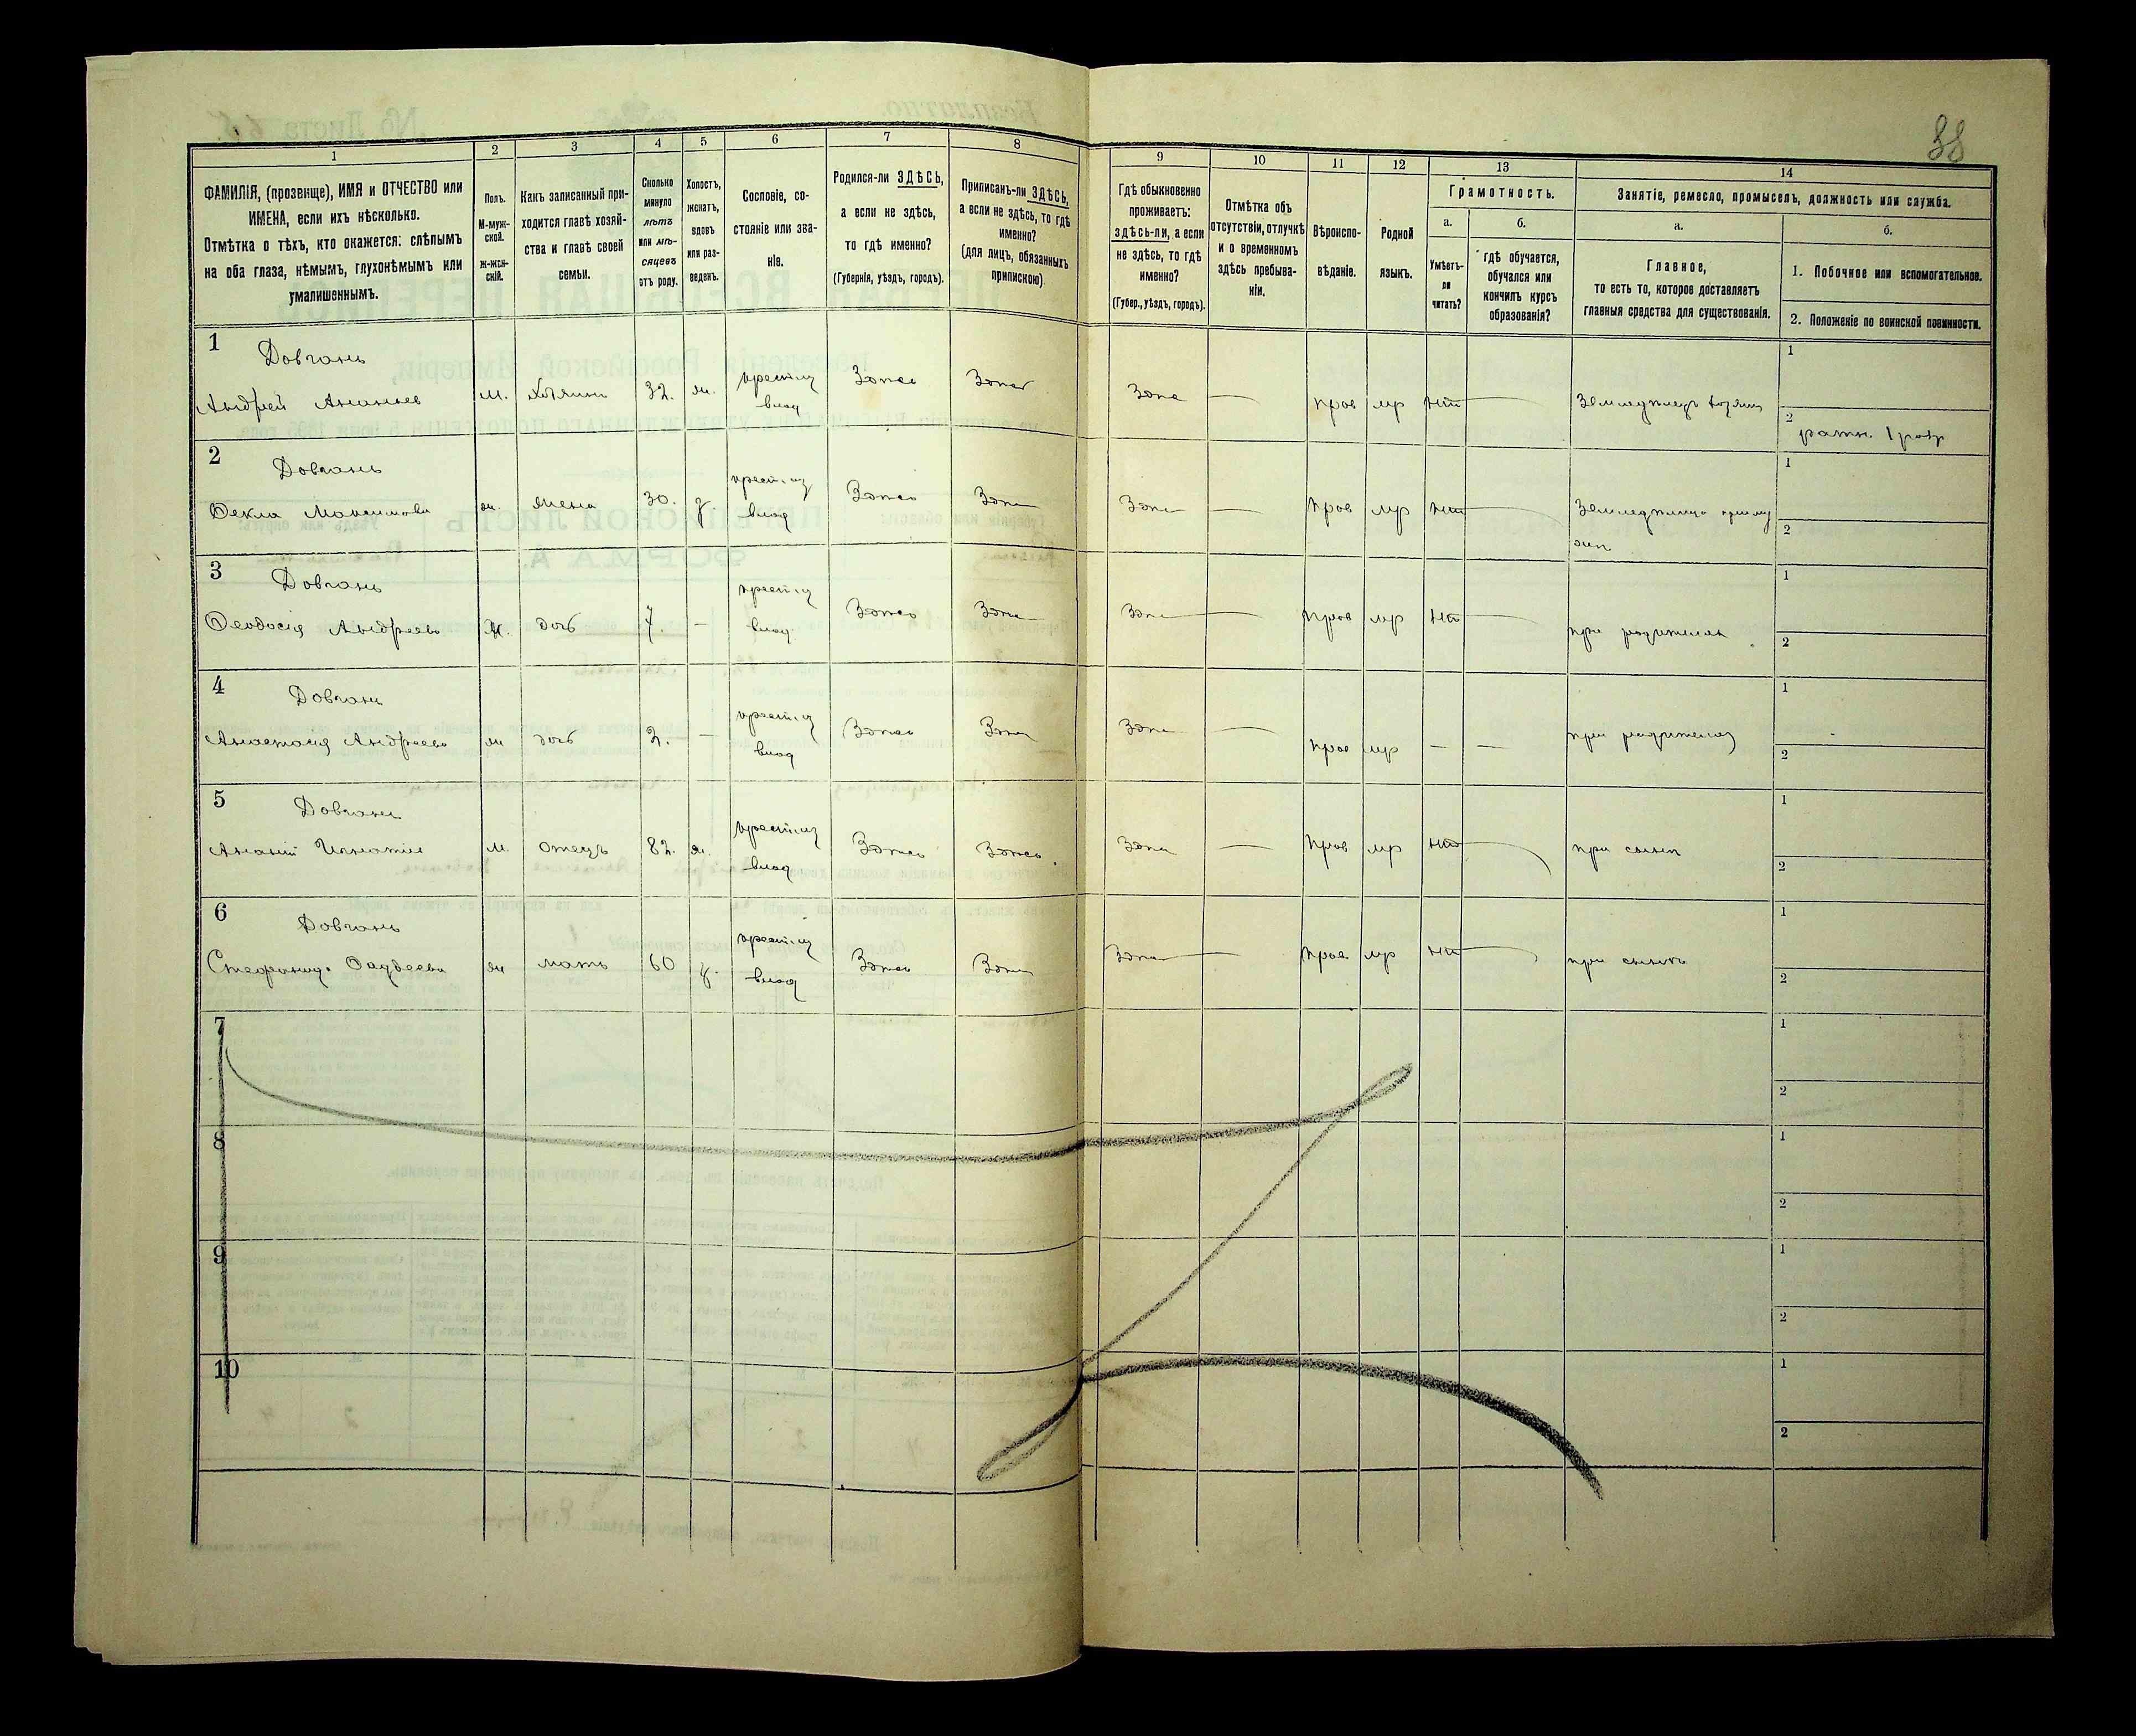 88
1
2
3
4
5
6
7
8
9
10
11
12
13
14
ФАМИЛІЯ, (прозвище), ИМЯ и ОТЧЕСТВО или
ИМЕНА, если ихъ нѣсколько.
Отмѣтка о тѣхъ, кто окажется: слѣпымъ
на оба глаза, нѣмымъ, глухонѣмымъ или
умалишеннымъ.
Полъ.
М-муж-
ской.
Ж-жен-
скій.
Какъ записанный при-
ходится главѣ хозяй-
ства и главѣ своей
семьи.
Сколько
минуло
лѣтъ
или мѣ-
сяцевъ
отъ роду.
Холостъ,
женатъ,
вдовъ
или раз-
веденъ.
Сословіе, со-
стояніе или зва-
ніе.
Родился-ли ЗДѢСЬ,
а если не здѣсь,
то гдѣ именно?
(Губернія, уѣздъ, городъ).
Приписанъ-ли ЗДѢСЬ,
а если не здѣсь, то гдѣ
именно?
(для лицъ, обязанныхъ
припискою)
Гдѣ обыкновенно
проживаетъ:
здѣсь-ли, а если
не здѣсь, то гдѣ
именно?
(Губер., уѣздъ, городъ).
Отмѣтка объ
отсутствіи, отлучкѣ
и о временномъ
здѣсь пребыва-
ніи.
Вѣроиспо-
вѣданіе.
Родной
языкъ.
Грамотность.
а.
Умѣетъ-
ли
читать?
б.
гдѣ обучается,
обучался или
кончилъ курсъ
образованія?
Занятіе, ремесло, промыселъ, должность или служба.
а.
Главное,
то есть то, которое доставляетъ
главныя средства для существованія.
б.
1. Побочное или вспомогательное.
2. Положеніе по воинской повинности.
1 Довгань
Андрей Ананьев м. хозяинъ 32. ж. Здѣсь Здѣсь Здѣсь — прав мр нѣт 1
влад 2 ратн. 1 разр
2 Довгань
Фекла Максимова ж. жена 30. з. Здѣсь Здѣсь Здѣсь — прав мр нѣт 1
влад 2
3 Довгань
Феодосія Андреева ж. дочь 7. — Здѣсь Здѣсь Здѣсь — прав мр нѣт при родителях 1
влад 2
4 Довгань
Анастасія Андреева ж дочь 2. — Здѣсь Здѣсь Здѣсь — прав мр — — при родителях 1
влад 2
5 Довгань
Ананій Игнатіев м. отецъ 82. ж. Здѣсь Здѣсь. Здѣсь — прав мр нѣт при сынѣ 1
влад 2
6 Довгань
ж мать 60 з. Здѣсь Здѣсь Здѣсь — прав мр нѣт при сынѣ 1
влад 2
7 1
2
8 1
2
9 1
2
10 1
2